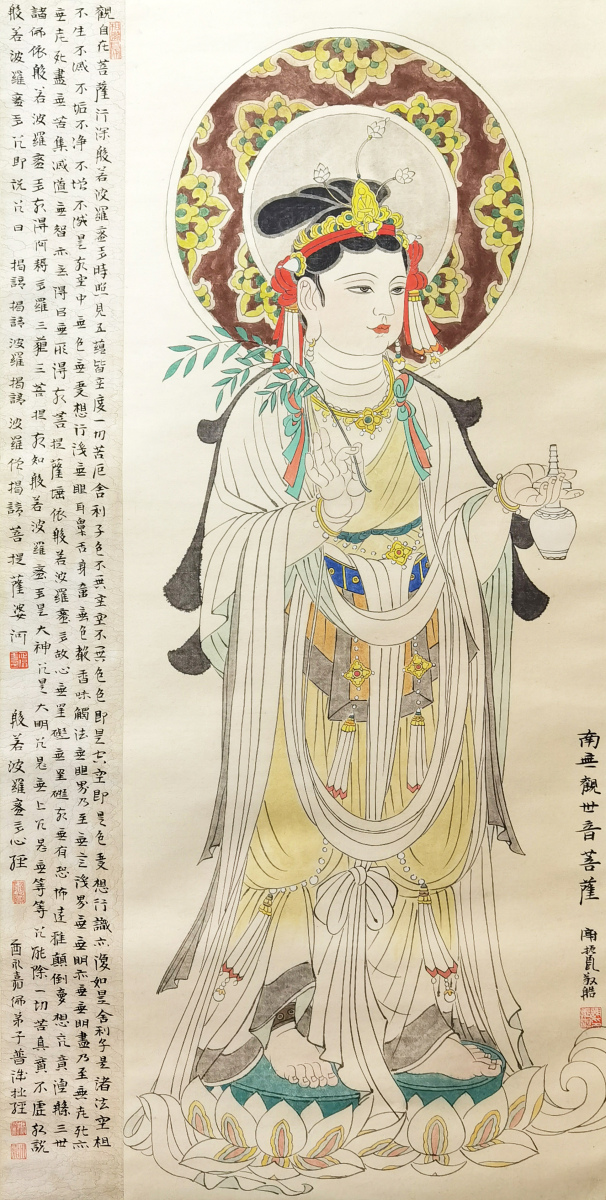 南無觀世音菩薩
觀自在菩薩行深般若波羅蜜多時照見五蘊皆空度一切苦厄舍利子色不異空空不異色色即是空空即是色受想行識亦復如是舍利子是諸法空相
不生不滅不垢不净不增不減是故空中無色無受想行識無眼耳鼻舌身意無色聲香味觸法無眼界乃至無意識界無無明亦無無明盡乃至無老死亦
無老死盡無苦集滅道無智亦無得以無所得故菩提薩埵依般若波羅蜜多故心無罣礙無罣礙故無有恐怖遠離顛倒夢想究竟涅槃三世
諸佛依般若波羅蜜多故得阿耨多羅三藐三菩提故知般若波羅蜜多是大神咒是大明咒是無上咒是無等等咒能除一切苦真實不虛故說
般若波羅蜜多咒即說咒曰 揭諦揭諦波羅揭諦波羅僧揭諦菩提薩婆河
般若波羅蜜多心經
永嘉佛弟子普